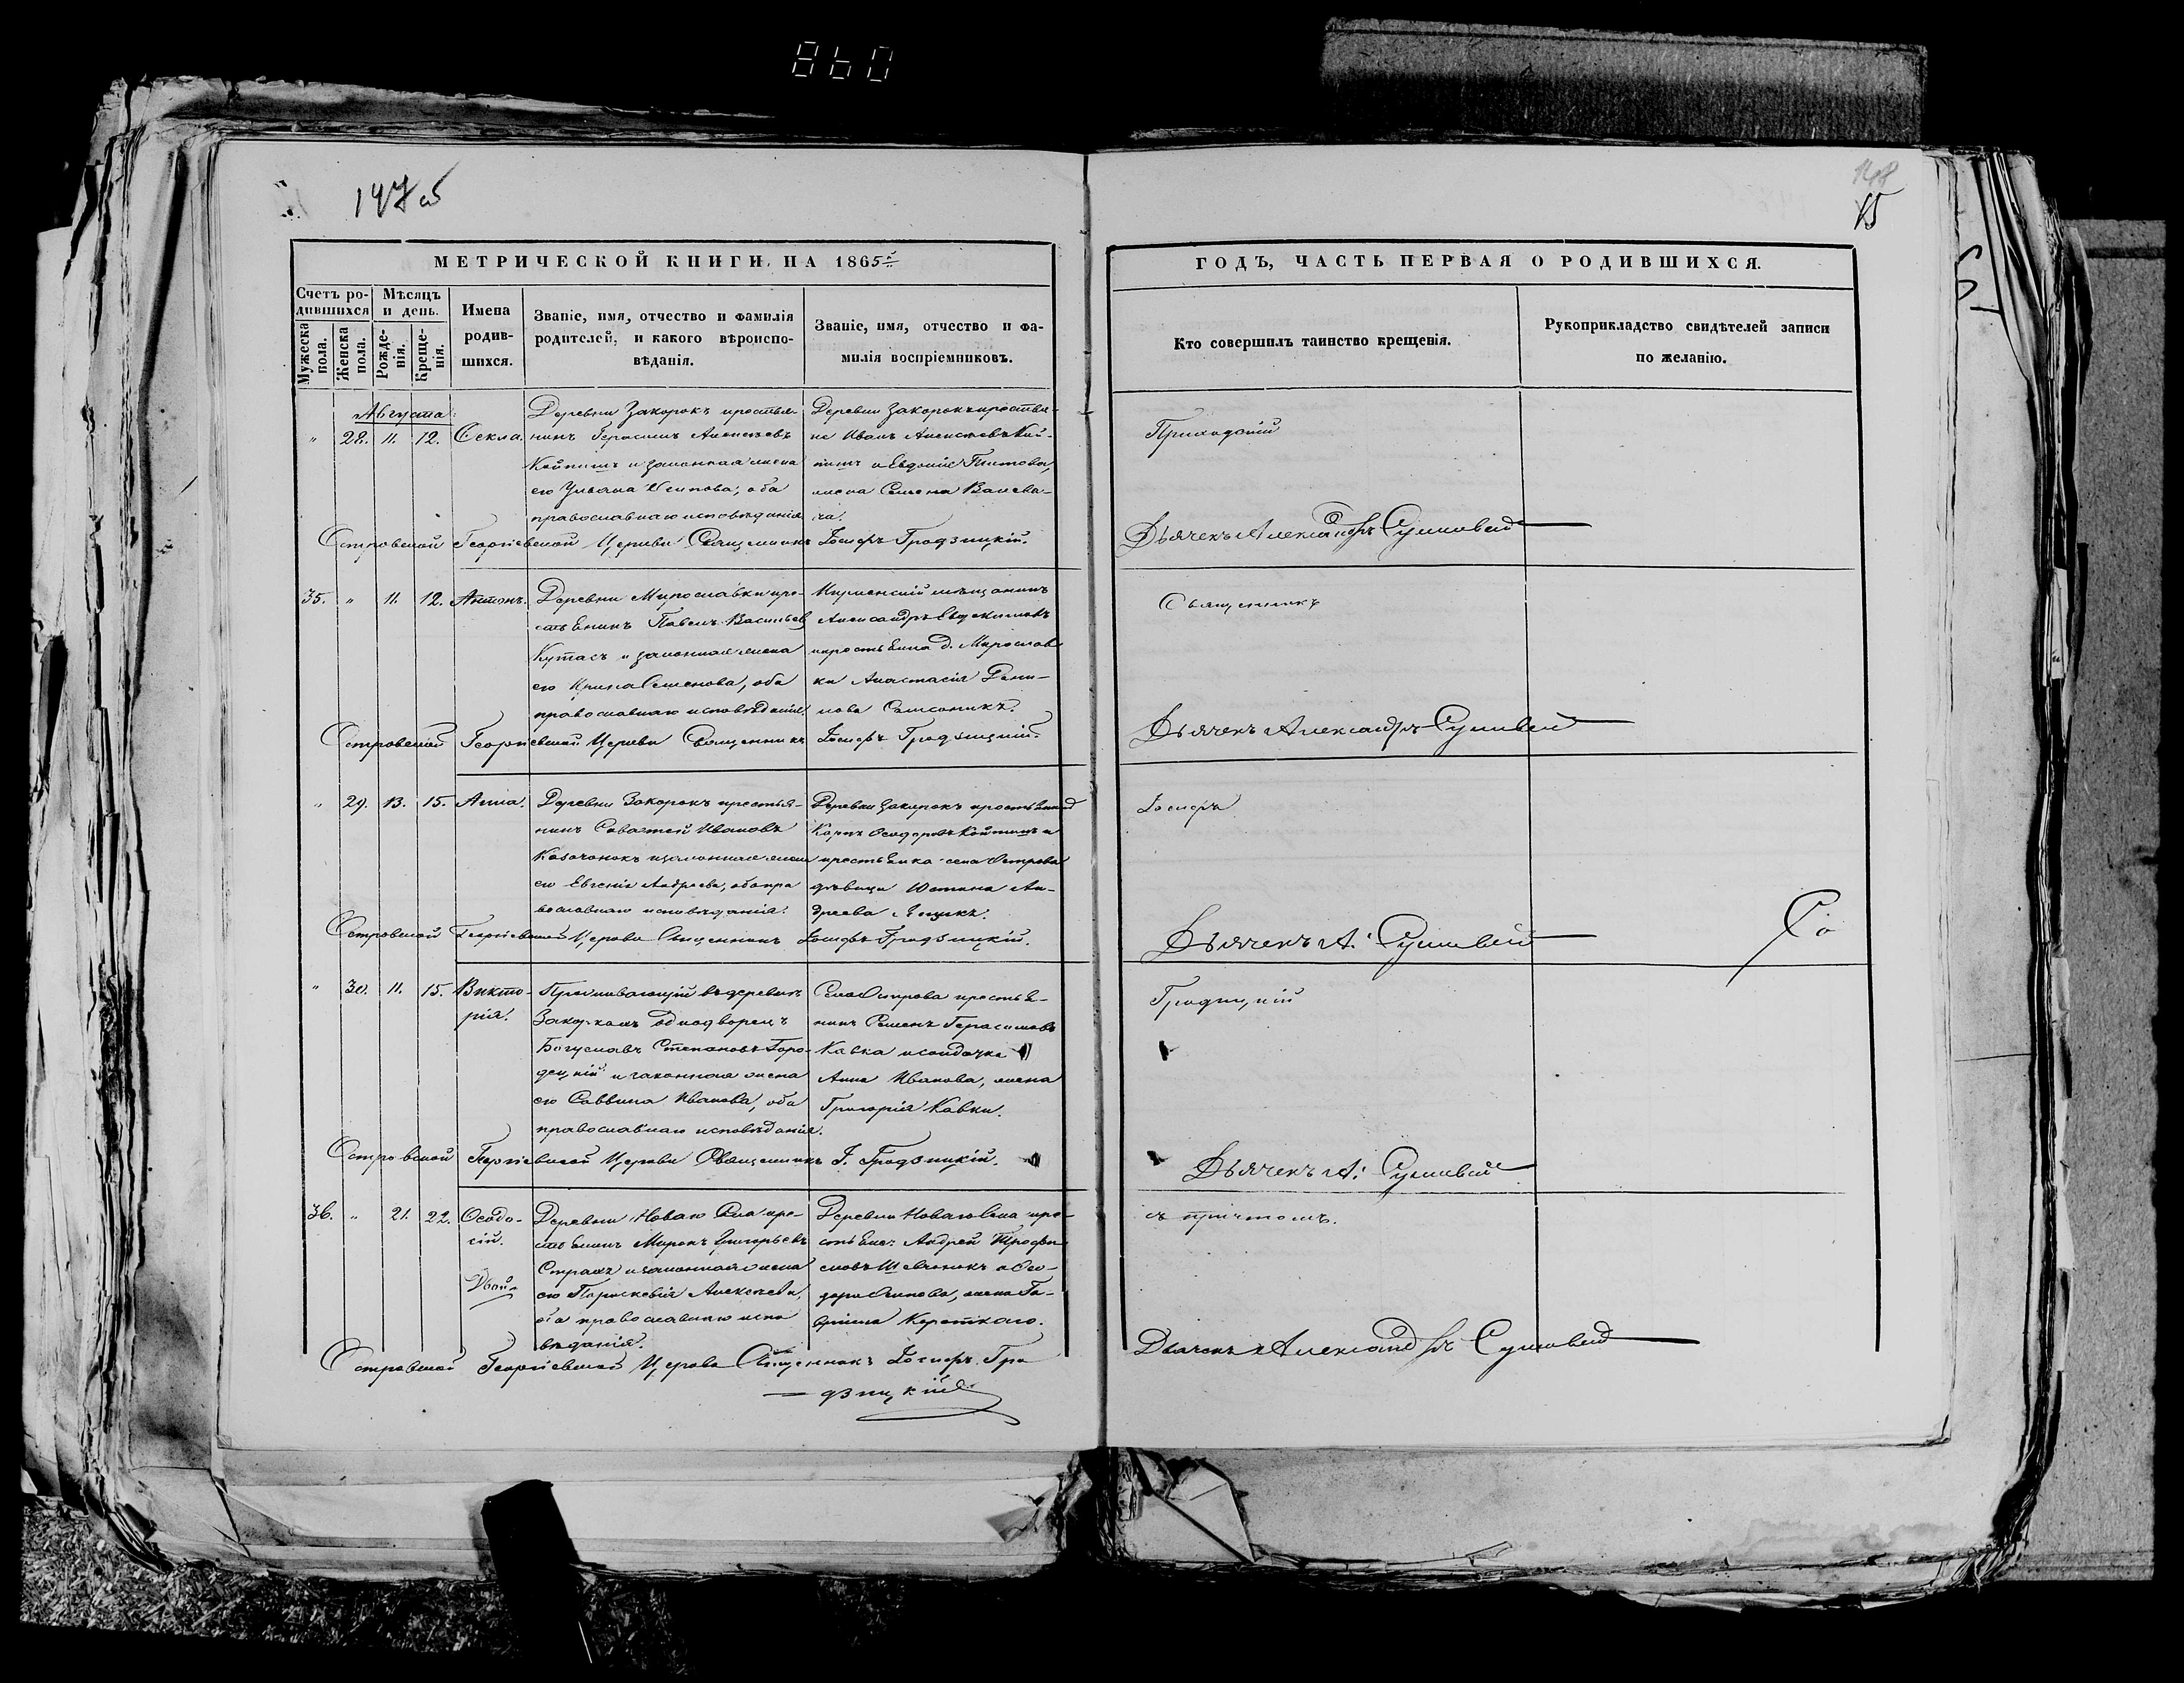 860
147 об
148
15
МЕТРИЧЕСКОЙ КНИГИ НА 1865й
ГОДЪ, ЧАСТЬ ПЕРВАЯ О РОДИВШИХСЯ.
Счетъ родившихся
Мужеска пола.
Женска пола.
Мѣсяцъ и день.
Рожденія.
Крещенія.
Имена родившихся.
Званіе, имя, отчество и фамилія родителей, и какого вѣроисповѣданія.
Званіе, имя, отчество и фамилія воспріемниковъ.
Кто совершилъ таинство крещенія.
Рукоприкладство свидѣтелей записи по желанію.
Августа
" 28. 11. 12. Ѳекла.
Деревни Закорокъ крестья-
нинъ Герасимъ Алексѣевъ
Койпишъ и законная жена
его Ульяна Осипова, оба
православнаго исповѣданія
Деревни Закорокъ крестья-
не Иванъ Алексѣевъ Кой-
пишъ и Евдокія Титова,
жена Семена Валева-
ча.
Приходскій
Островской Георгіевской Церкви Священникъ Іосифъ Гродзицкій.
Дьячекъ Александръ Сушовей
35. " 11. 12. Антонъ.
Деревни Мирославки кре-
стьянинъ Павелъ Васильевъ
Куташъ и законная жена
его Ирина Семенова, оба
православнаго исповѣданія,
Игуменскій мѣщанинъ
Александръ Евдокимовъ
и крестьянка д. Мирослав
ки Анастасія Дани-
лова Самсоникъ.
Священникъ
Островской Георгіевской Церкви Священникъ Іосифъ Гродзицкій.
Дьячекъ Александръ Сушовей
" 29. 13. 15. Анна.
Деревни Закорокъ крестья-
нинъ Саватей Ивановъ
Казачонокъ и законная жена
его Евгенія Андреева, оба пра
вославнаго исповѣданія.
Деревни Закорокъ крестьянинъ
Карпъ Ѳеодоровъ Койпишъ и
крестьянка села Острова
дѣвица Юстина Ан-
дреева Яцукъ.
Іосифъ
Островской Георгіевской Церкви Священникъ Іосифъ Гродзицкій.
Дьячекъ А. Сушовей
" 30. 11. 15. Викто-
рія.
Проживающій въ деревнѣ
Закоркахъ однодворецъ
Богуславъ Степановъ Горо-
децкій и законная жена
его Саввина Иванова, оба
православнаго исповѣданія.
Села Острова крестья-
нинъ Семенъ Герасимовъ
Кавка и солдатка
Анна Иванова, жена
Григорія Кавки.
Гродзицкій
Островской Георгіевской Церкви Священникъ І. Гродзицкій.
Дьячекъ А. Сушовей
36. " 21. 22. Ѳеодо-
сій.
Деревни Новаго Села кре-
стьянинъ Миронъ Григорьевъ
Страхъ и законная жена
его Параскевія Алексѣева,
оба православнаго испо
вѣданія.
Деревни Новаго Села кре-
стьяне: Андрей Трофи
мовъ Шевчонокъ и Ѳео-
дора Осипова, жена Га-
вріила Короткаго.
съ причтомъ.
Островской Георгіевской Церкви Священникъ Іосифъ Гро
дзицкій
Дьячекъ Александръ Сушовей